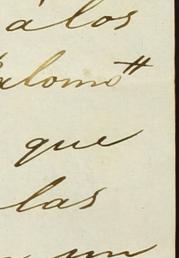 á los
alomo"
que
las
un